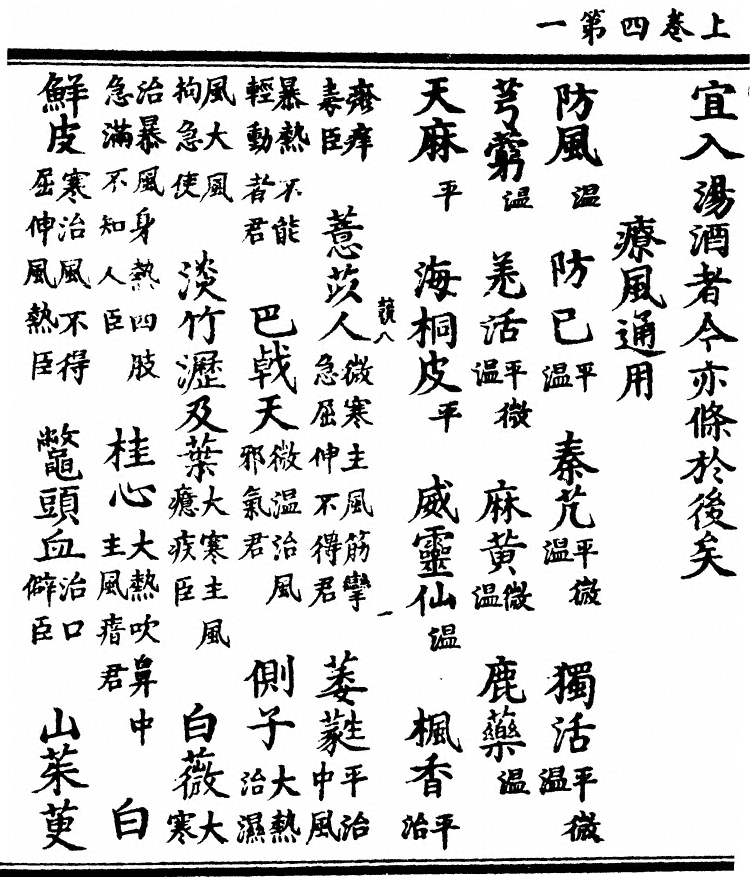 上卷四第一
宜入湯酒者今亦條於後矣
療風通用
防風溫 防已平溫 秦艽平微溫 獨活平微溫
芎藭溫 羌活平微溫 麻黃微溫 鹿藥溫
天麻平 海桐皮平 威靈仙溫 楓香平治
痒毒臣 薏苡人微寒主風筋攣急屈伸不得君 萎蕤平治中風
暴熱不能輕動者君 巴戟天微溫治風邪氣君 側子大熱治濕
風大風拘急使 淡竹瀝及葉大寒主風癮疾臣 白薇大寒
治暴風身熱四肢急滿不知人臣 桂心大熱吹鼻中主風瘖君 白
鮮皮寒治風不得屈伸風熱臣 鼈頭血治口僻臣 山茱萸